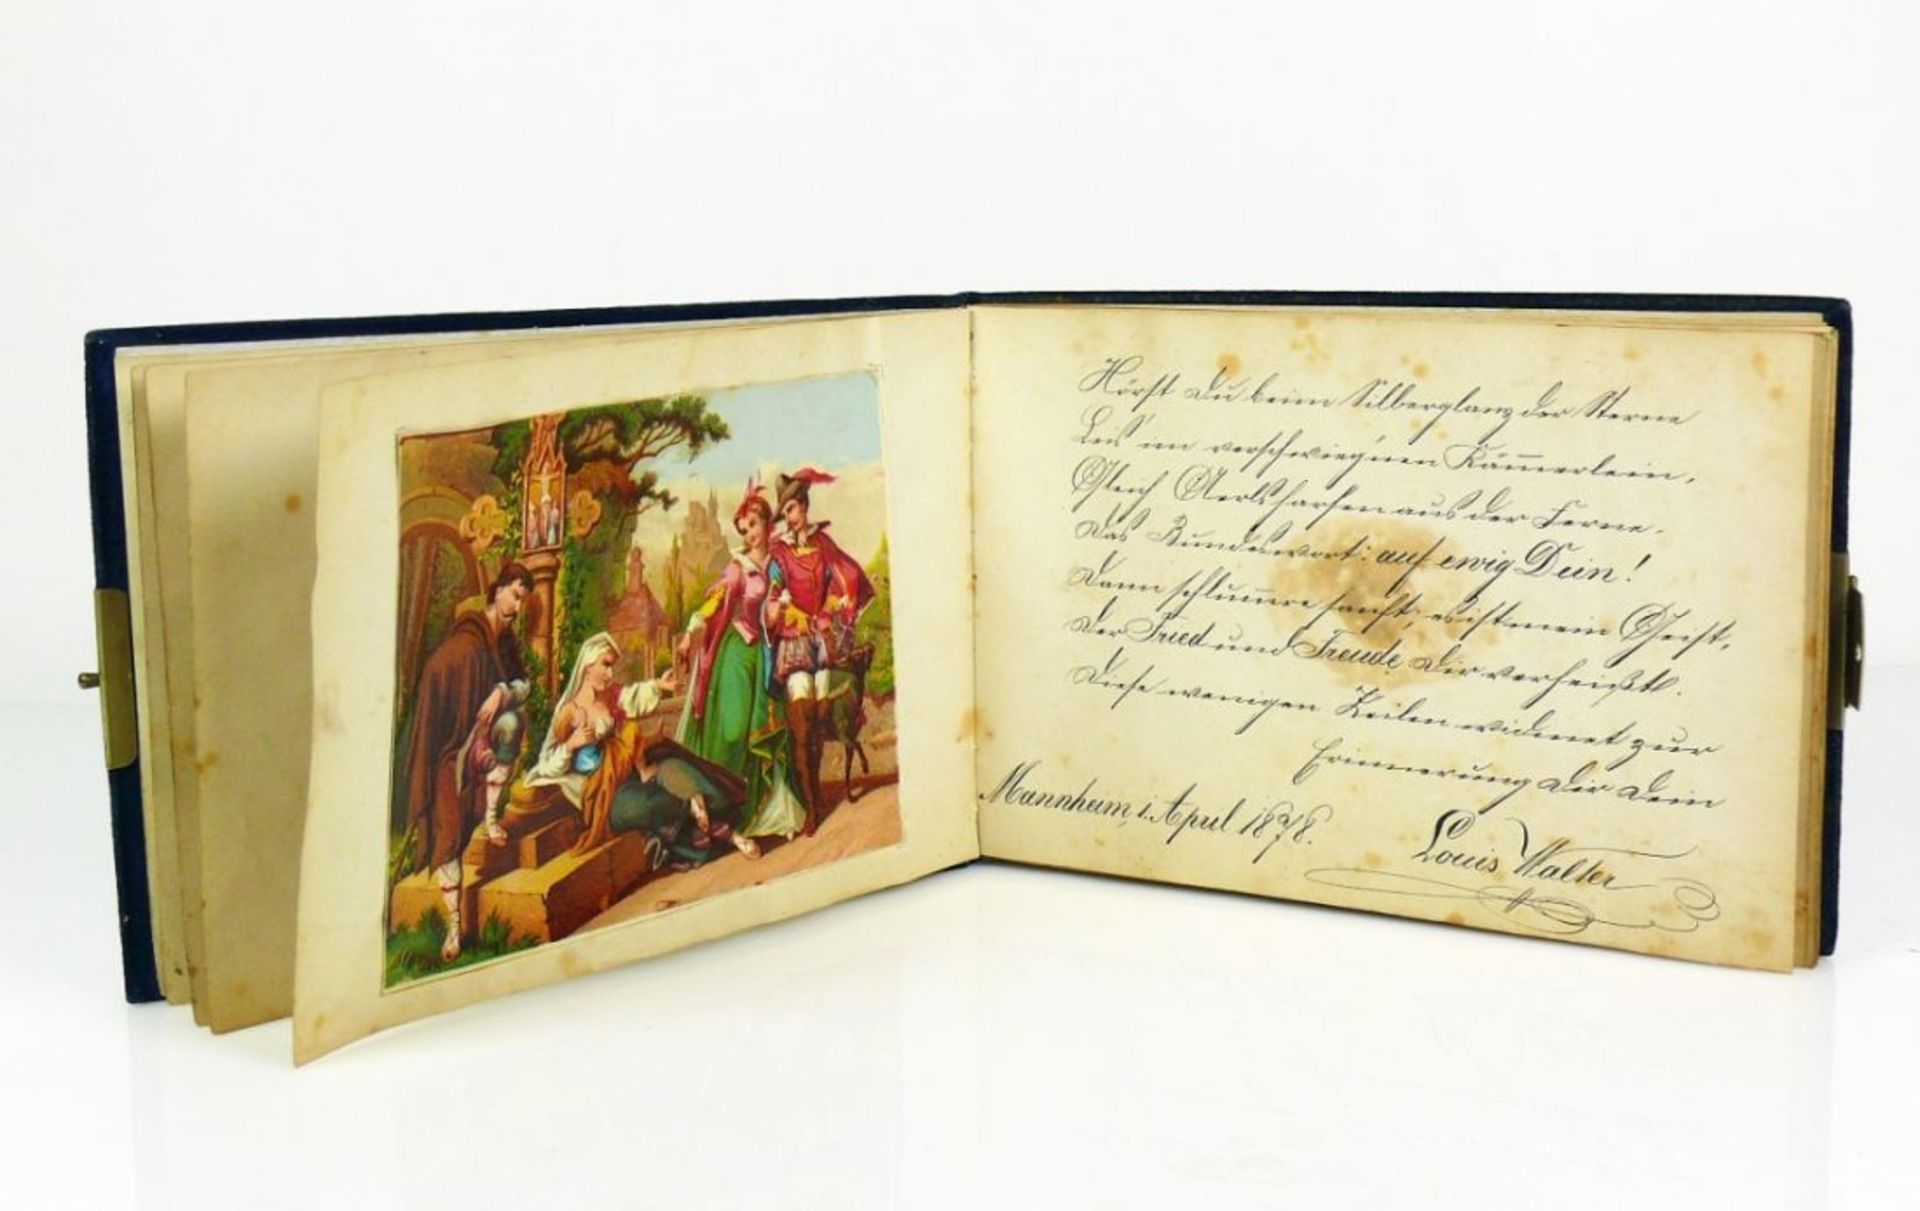 Hörst Du beim Silberglanz der Sterne
Leis' im verschwieg'nen Kämerlein,
Gleich Aeolsharfen aus der Ferne.
Das Bundeswort: auf ewig Dein!
Dann schlumere sanft; es ist mein Geist,
Der Fried und Freude Dir verheißt.
Diese wenigen Zeilen widmet zur
Erinnerung Dir Dein
Mannheim, 1. April 1878.
Louis Walter